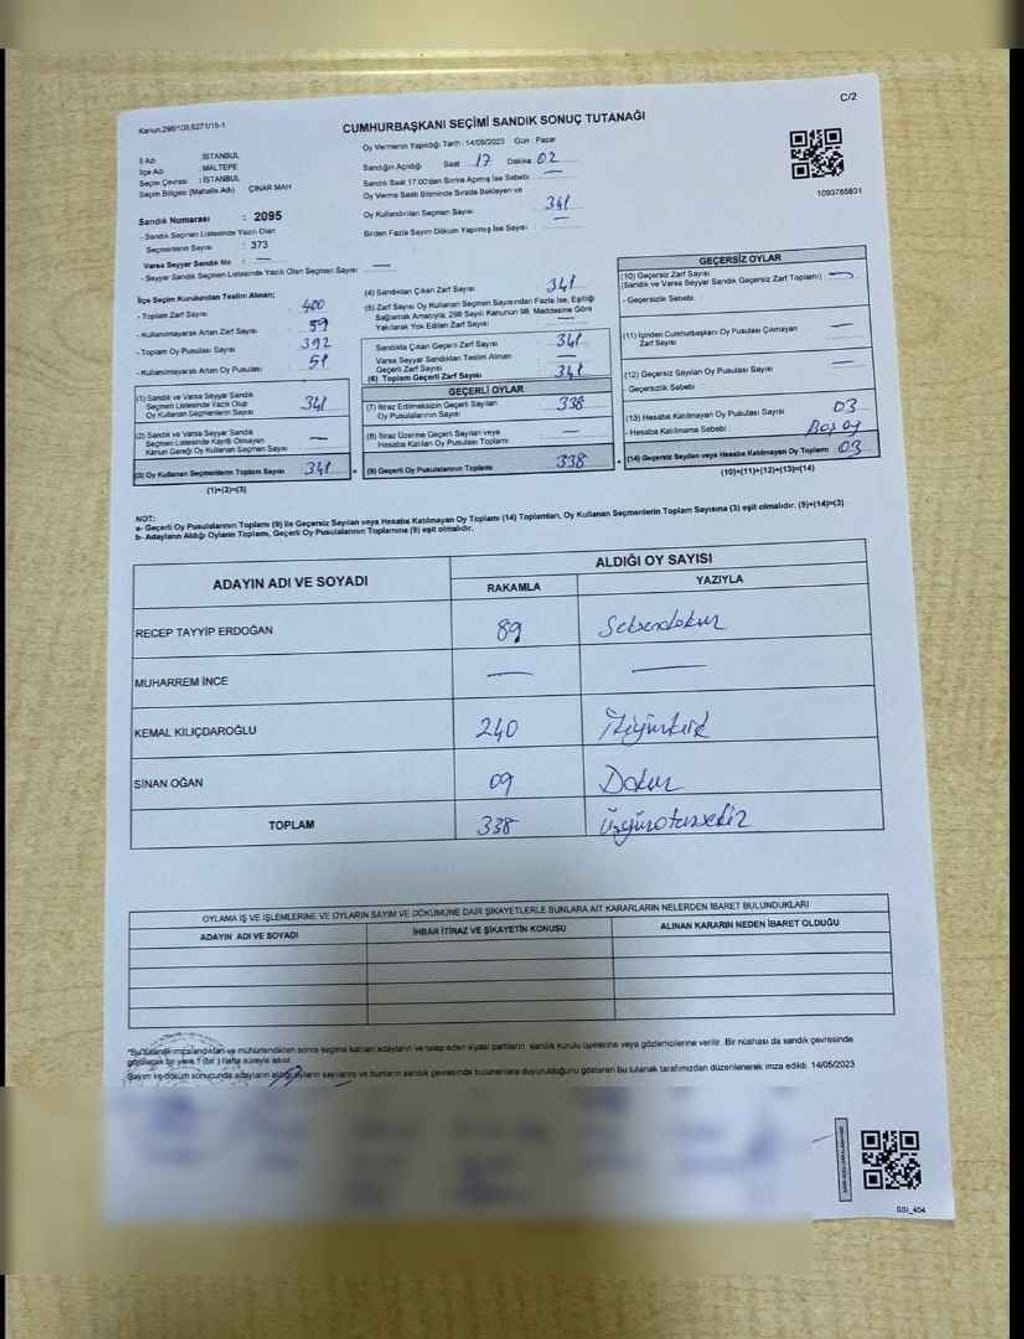 C/2
Kanun:298/103;6271/15-1
CUMHURBAŞKANI SEÇİMİ SANDIK SONUÇ TUTANAĞI
İl Adı : İSTANBUL
İlçe Adı : MALTEPE
Seçim Çevresi : İSTANBUL
Seçim Bölgesi (Mahalle Adı) ÇINAR MAH
Sandık Numarası : 2095
- Sandık Seçmen Listesinde Yazılı Olan
Seçmenlerin Sayısı : 373
Varsa Seyyar Sandık No : —
- Seyyar Sandık Seçmen Listesinde Yazılı Olan Seçmen Sayısı —
Oy Vermenin Yapıldığı Tarih : 14/05/2023 Gün : Pazar
Sandığın Açıldığı Saat 17 Dakika 02
Sandık Saat 17.00'den Sonra Açılmış İse Sebebi : —
Oy Verme Saati Bitiminde Sırada Bekleyen ve
Oy Kullandırılan Seçmen Sayısı 341
Birden Fazla Sayım Döküm Yapılmış İse Sayısı : —
1093765831
İlçe Seçim Kurulundan Teslim Alınan;
- Toplam Zarf Sayısı 400
- Kullanılmayarak Artan Zarf Sayısı 59
- Toplam Oy Pusulası Sayısı 392
- Kullanılmayarak Artan Oy Pusulası 51
(1) Sandık ve Varsa Seyyar Sandık
Seçmen Listesinde Yazılı Olup
Oy Kullanan Seçmenlerin Sayısı 341
(2) Sandık ve Varsa Seyyar Sandık
Seçmen Listesinde Kayıtlı Olmayan
Kanun Gereği Oy Kullanan Seçmen Sayısı —
(3) Oy Kullanan Seçmenlerin Toplam Sayısı 341
(1)+(2)=(3)
(4) Sandıktan Çıkan Zarf Sayısı 341
(5) Zarf Sayısı Oy Kullanan Seçmen Sayısından Fazla İse, Eşitliği
Sağlamak Amacıyla, 298 Sayılı Kanunun 98. Maddesine Göre
Yakılarak Yok Edilen Zarf Sayısı —
Sandıkta Çıkan Geçerli Zarf Sayısı 341
Varsa Seyyar Sandıktan Teslim Alınan
Geçerli Zarf Sayısı —
(6) Toplam Geçerli Zarf Sayısı 341
GEÇERLİ OYLAR
(7) İtiraz Edilmeksizin Geçerli Sayılan
Oy Pusulalarının Sayısı 338
(8) İtiraz Üzerine Geçerli Sayılan veya
Hesaba Katılan Oy Pusulası Toplamı —
(9) Geçerli Oy Pusulalarının Toplamı 338
GEÇERSİZ OYLAR
(10) Geçersiz Zarf Sayısı
(Sandık ve Varsa Seyyar Sandık Geçersiz Zarf Toplamı) —
- Geçersizlik Sebebi :
(11) İçinden Cumhurbaşkanı Oy Pusulası Çıkmayan
Zarf Sayısı —
(12) Geçersiz Sayılan Oy Pusulası Sayısı —
- Geçersizlik Sebebi :
(13) Hesaba Katılmayan Oy Pusulası Sayısı 03
- Hesaba Katılmama Sebebi : Boş oy
(14) Geçersiz Sayılan veya Hesaba Katılmayan Oy Toplamı 03
(10)+(11)+(12)+(13)=(14)
NOT:
a- Geçerli Oy Pusulalarının Toplamı (9) ile Geçersiz Sayılan veya Hesaba Katılmayan Oy Toplamı (14) Toplamları, Oy Kullanan Seçmenlerin Toplam Sayısına (3) eşit olmalıdır. (9)+(14)=(3)
b- Adayların Aldığı Oyların Toplamı, Geçerli Oy Pusulalarının Toplamına (9) eşit olmalıdır.
ADAYIN ADI VE SOYADI ALDIĞI OY SAYISI
RAKAMLA YAZIYLA
RECEP TAYYİP ERDOĞAN 89 Seksendokuz
MUHARREM İNCE — —
KEMAL KILIÇDAROĞLU 240 İkiyüzkırk
SİNAN OĞAN 09 Dokuz
TOPLAM 338 Üçyüzotuzsekiz
OYLAMA İŞ VE İŞLEMLERİNE VE OYLARIN SAYIM VE DÖKÜMÜNE DAİR ŞİKAYETLERLE BUNLARA AİT KARARLARIN NELERDEN İBARET BULUNDUKLARI
ADAYIN ADI VE SOYADI İHBAR İTİRAZ VE ŞİKAYETİN KONUSU ALINAN KARARIN NEDEN İBARET OLDUĞU
*Bu tutanak imzalandıktan ve mühürlendikten sonra seçime katılan adayların ve talep eden siyasi partilerin sandık kurulu üyelerine veya gözlemcilerine verilir. Bir nüshası da sandık çevresinde
görülecek bir yere 1 (bir) hafta süreyle asılır.
Sayım ve döküm sonucunda adayların aldığı oyların sayılarını ve bunların sandık çevresinde bulunanlara duyurulduğunu gösteren bu tutanak tarafımızdan düzenlenerek imza edildi. 14/05/2023
SSI_404